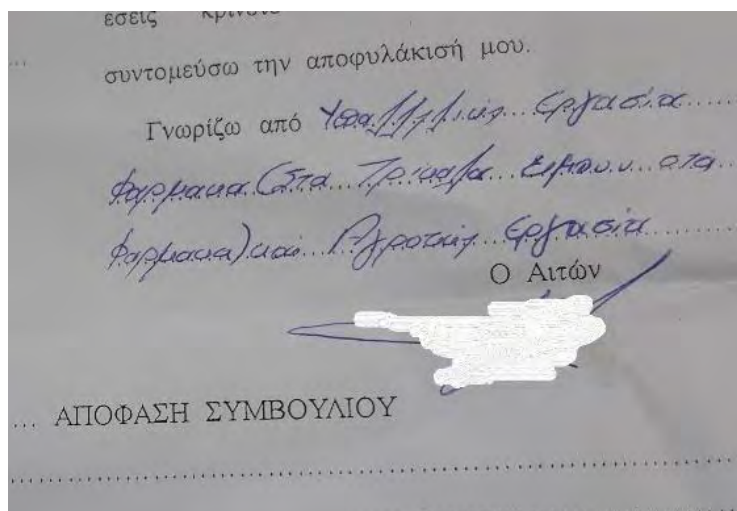 εσεις κρίνετε
συντομεύσω την αποφυλάκισή μου.
Γνωρίζω από Υπαλληλική Εργασία
Φάρμακα (Στα Τρίκαλα ειμουν στα
Φαρμακα) και Αγροτική Εργασία
Ο Αιτών
... ΑΠΟΦΑΣΗ ΣΥΜΒΟΥΛΙΟΥ